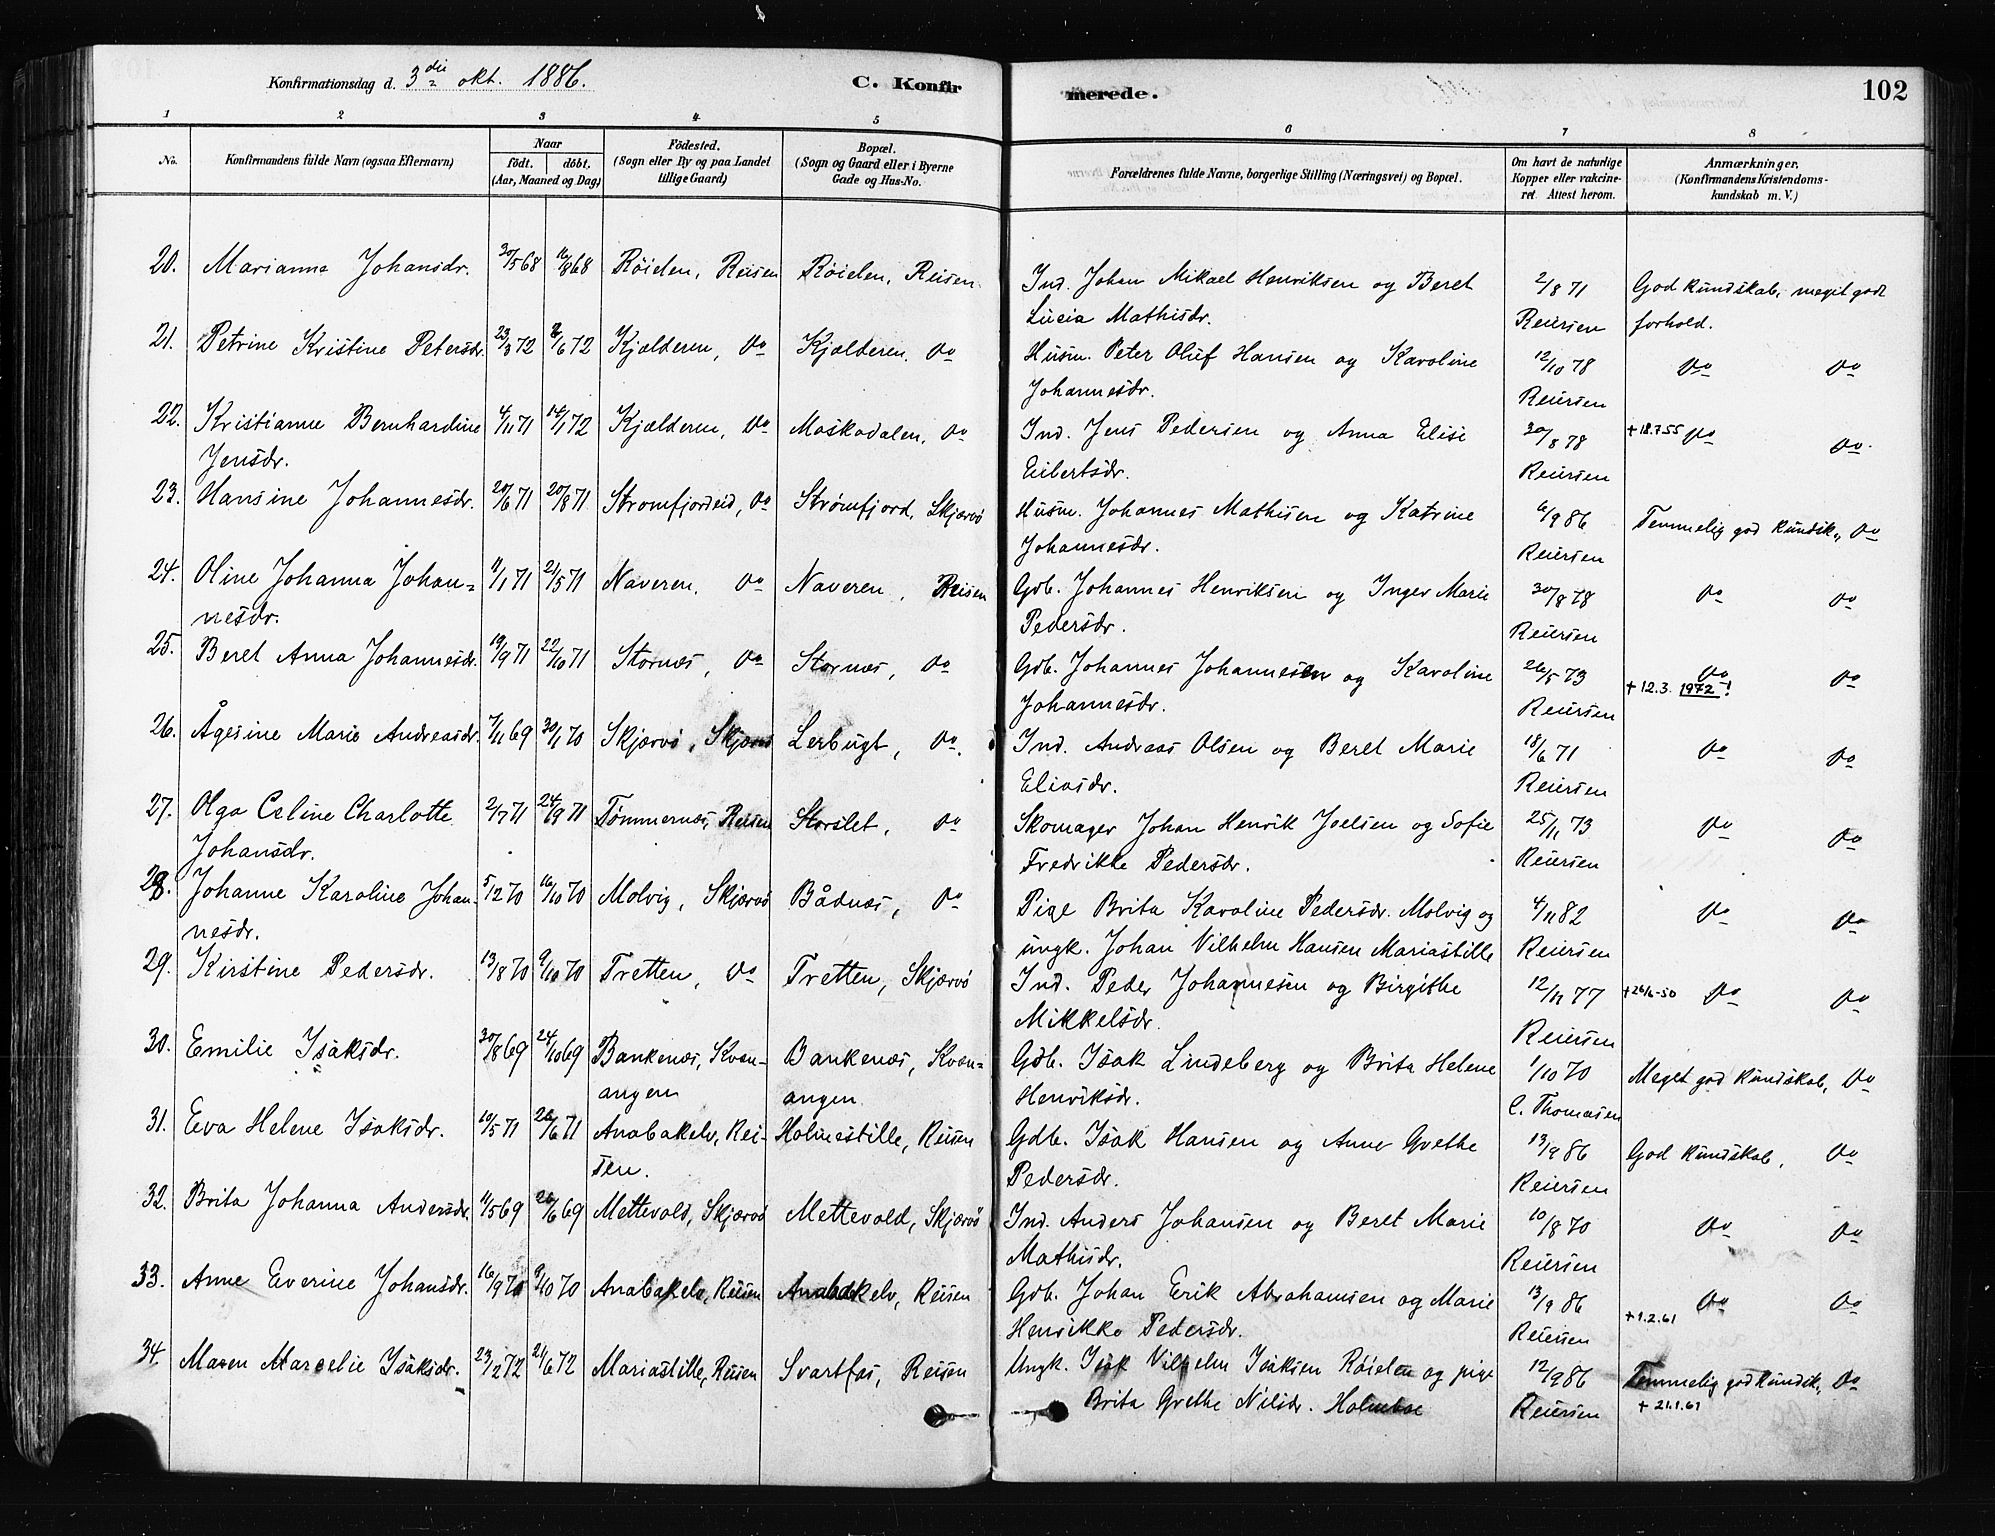 Konfirmationsdag d. 3die okt. 1886.
C. Konfirmerede.
102
1 2 3 4 5 6 7 8
No.
Konfirmandens fulde Navn (ogsaa Efternavn)
Naar
födt. döbt.
(Aar, Maaned og Dag)
Födested.
(Sogn eller By og paa Landet
tillige Gaard)
Bopæl.
(Sogn og Gaard eller i Byerne
Gade og Hus-No.
Forældrenes fulde Navne, borgerlige Stilling (Næringsvei) og Bopæl.
Om havt de naturlige
Kopper eller vakcine-
ret. Attest herom.
Anmærkninger.
(Konfirmandens Kristendoms-
kundskab m. V.)
20. Marianna Johansdr. 30/5 68 16/8 68 Röielen, Reisen Röielen, Reisen. Ind. Johan Mikael Henriksen og Beret 2/8 71 God kundskab, meget godt
Lucia Mathisdr. Reiersen forhold.
21. Petrine Kristine Petersdr. 23/3 72 16/6 72 Kjælderen, Do Kjælderen, Do Husm. Peter Oluf Hansen og Karoline 12/10 78 Do Do
Johannesdr. Reiersen
22. Kristianne Bernhardine 4/11 71 14/1 72 Kjælderen, Do Moskodalen, Do Ind. Jens Pedersen og Anna Elise 30/8 78 +18.7.55 Do Do.
Jensdr. Eilertsdr. Reiersen
23. Hansine Johannesdr. 20/6 71 20/8 71 Stromfjordeid, Do Strømfjord, Skjærvö Husm. Johannes Mathisen og Katrine 6/9 86 Temmelig god kundsk., Do
Johannesdr. Reiersen
24. Oline Johanna Johan= 11/1 71 21/5 71 Naveren, Do Naveren, Reisen Gdb. Johannes Henriksen og Inger Marie 30/8 78 Do Do
nesdr. Pedersdr. Reiersen
25. Beret Anna Johannesdr. 19/9 71 22/10 71 Stornæs, Do Stornæs, Do Gdb. Johannes Johannesen og Karoline 26/5 73 Do Do
Johannesdr. Reiersen + 12.3. 1972!
26. Ågesine Marie Andreasdr. 7/11 69 30/1 70 Skjærvö, Skjærvö Lerbugt, Do. Ind. Andreas Olsen og Beret Marie 18/6 71 Do Do
Eliasdr. Reiersen
27. Olga Celine Charlotte 2/7 71 24/9 71 Tømmernæs, Reisen Storslet, Do Skomager Johan Henrik Joelsen og Sofie 25/11 73 Do Do
Johansdr. Fredrikke Pedersdr. Reiersen
28. Johanne Karoline Johan- 5/12 70 16/10 70 Molvig, Skjærvö Bådnæs, Do Pige Brita Karoline Pedersdr. Molvig og 4/11 82 Do Do
nesdr. ungk. Johan Vilhelm Hansen Mariastille Reiersen
29. Kirstine Pedersdr. 13/8 70 9/10 70 Tretten, Do Tretten, Skjærvö Ind. Peder Johannesen og Birgithe 12/11 77 +26/6-50 Do Do
Mikkelsdr. Reiersen
30. Emilie Isaksdr. 30/8 69 24/10 69 Bankenæs, Kvæn- Bankenæs, Kvæn= Gdb. Isak Lindeberg og Brita Helene 1/10 70 Meget god kundskab, Do
angen angen. Henriksdr. C. Thomasen
31. Eva Helene Isaksdr. 10/5 71 26/6 71 Anabakelv, Rei- Holmestille, Reisen Gdb. Isak Hansen og Anne Grethe 13/9 86 God kundskab, Do
sen. Pedersdr. Reiersen
32. Brita Johanna Andersdr. 11/5 69 26/6 69 Mettevold, Skjærvö Mettevold, Skjærvö Ind. Anders Johansen og Beret Marie 10/8 70 Do Do
Mathisdr. Reiersen
33. Anne Everine Johansdr. 16/9 70 9/10 70 Anabakelv, Reisen Anabakelv, Reisen Gdb. Johan Erik Abrahamsen og Marie 13/9 86 +1.2.61 Do Do
Henrikke Pedersdr. Reiersen
34. Maren Marselie Isaksdr. 23/2 72 21/6 72 Mariastille, Reisen Svartfos, Reisen Ungk. Isak Vilhelm Isaksen Röielen og pige 12/9 86 Temmelig god kundsk., Do
Brita Grethe Nilsdr. Holmboe Reiersen + 21.1.61